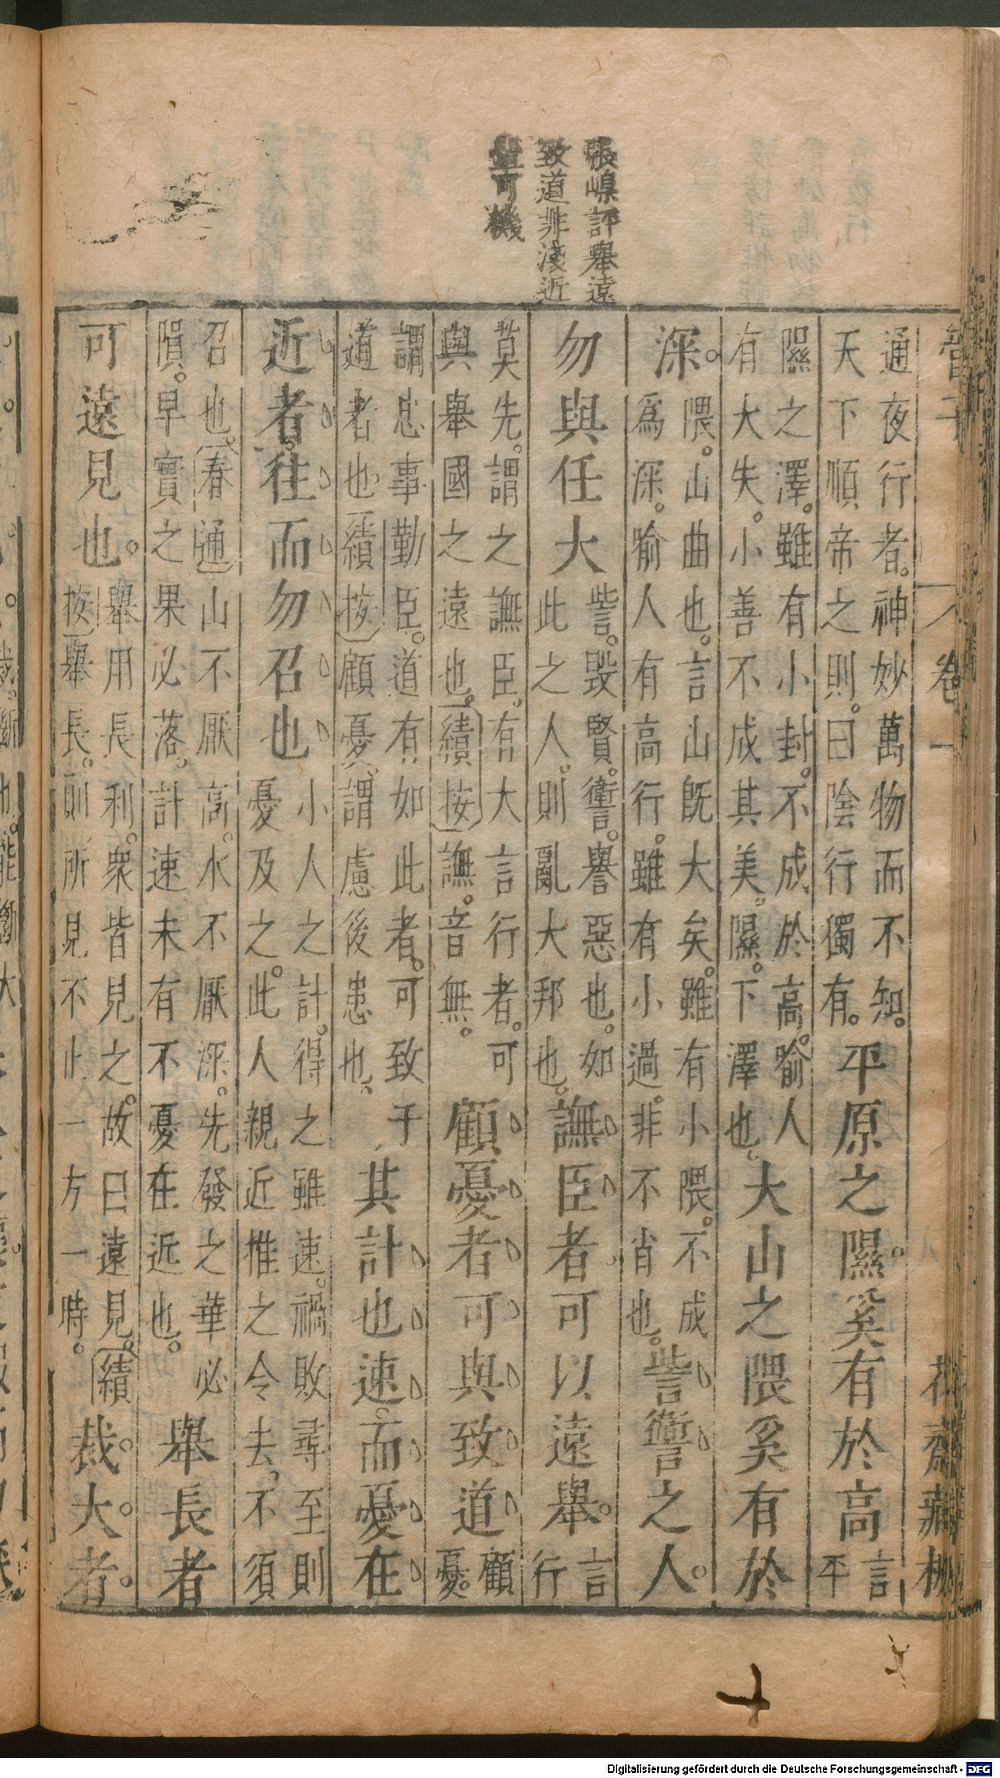 張嵲評舉遠
致道非淺近
量可機
管子
卷一
花齋藏板
通夜行者。神妙萬物而不知。
天下順帝之則。曰陰行獨有。
平原之隰。奚有於高
言
平
隰之澤。雖有小封。不成於高。喻人
有大失。小善不成其美。隰。下澤也。
大山之隈奚有於
深。
隈。山曲也。言山旣大矣。雖有小隈。不成
爲深。喻人有高行。雖有小過。非不肖也。
訾讆之人。
勿與任大
訾。毀賢。讆。譽惡也。如
此之人。則亂大邦也。
譕臣者可以遠舉。
言
行
莫先。謂之譕臣。有大言行者。可
與舉國之遠也。續按譕。音無。
顧憂者可與致道
顧
憂。
謂忠事勤臣。道有如此者。可致于
道者也續按顧憂。謂慮後患也。
其計也速。而憂在
近者。往而勿召也
小人之計。得之雖速。禍敗尋至則
憂及之。此人親近推之令去。不須
召也。春通山不厭高。水不厭深。先發之華必
隕。早實之果必落。計速未有不憂在近也。
舉長者
可遠見也。
舉用長利。衆皆見之。故曰遠見。續
按舉長。則所見不止一方一時。
裁大者。
Digitalisierung gefördert durch die Deutsche Forschungsgemeinschaft - DFG